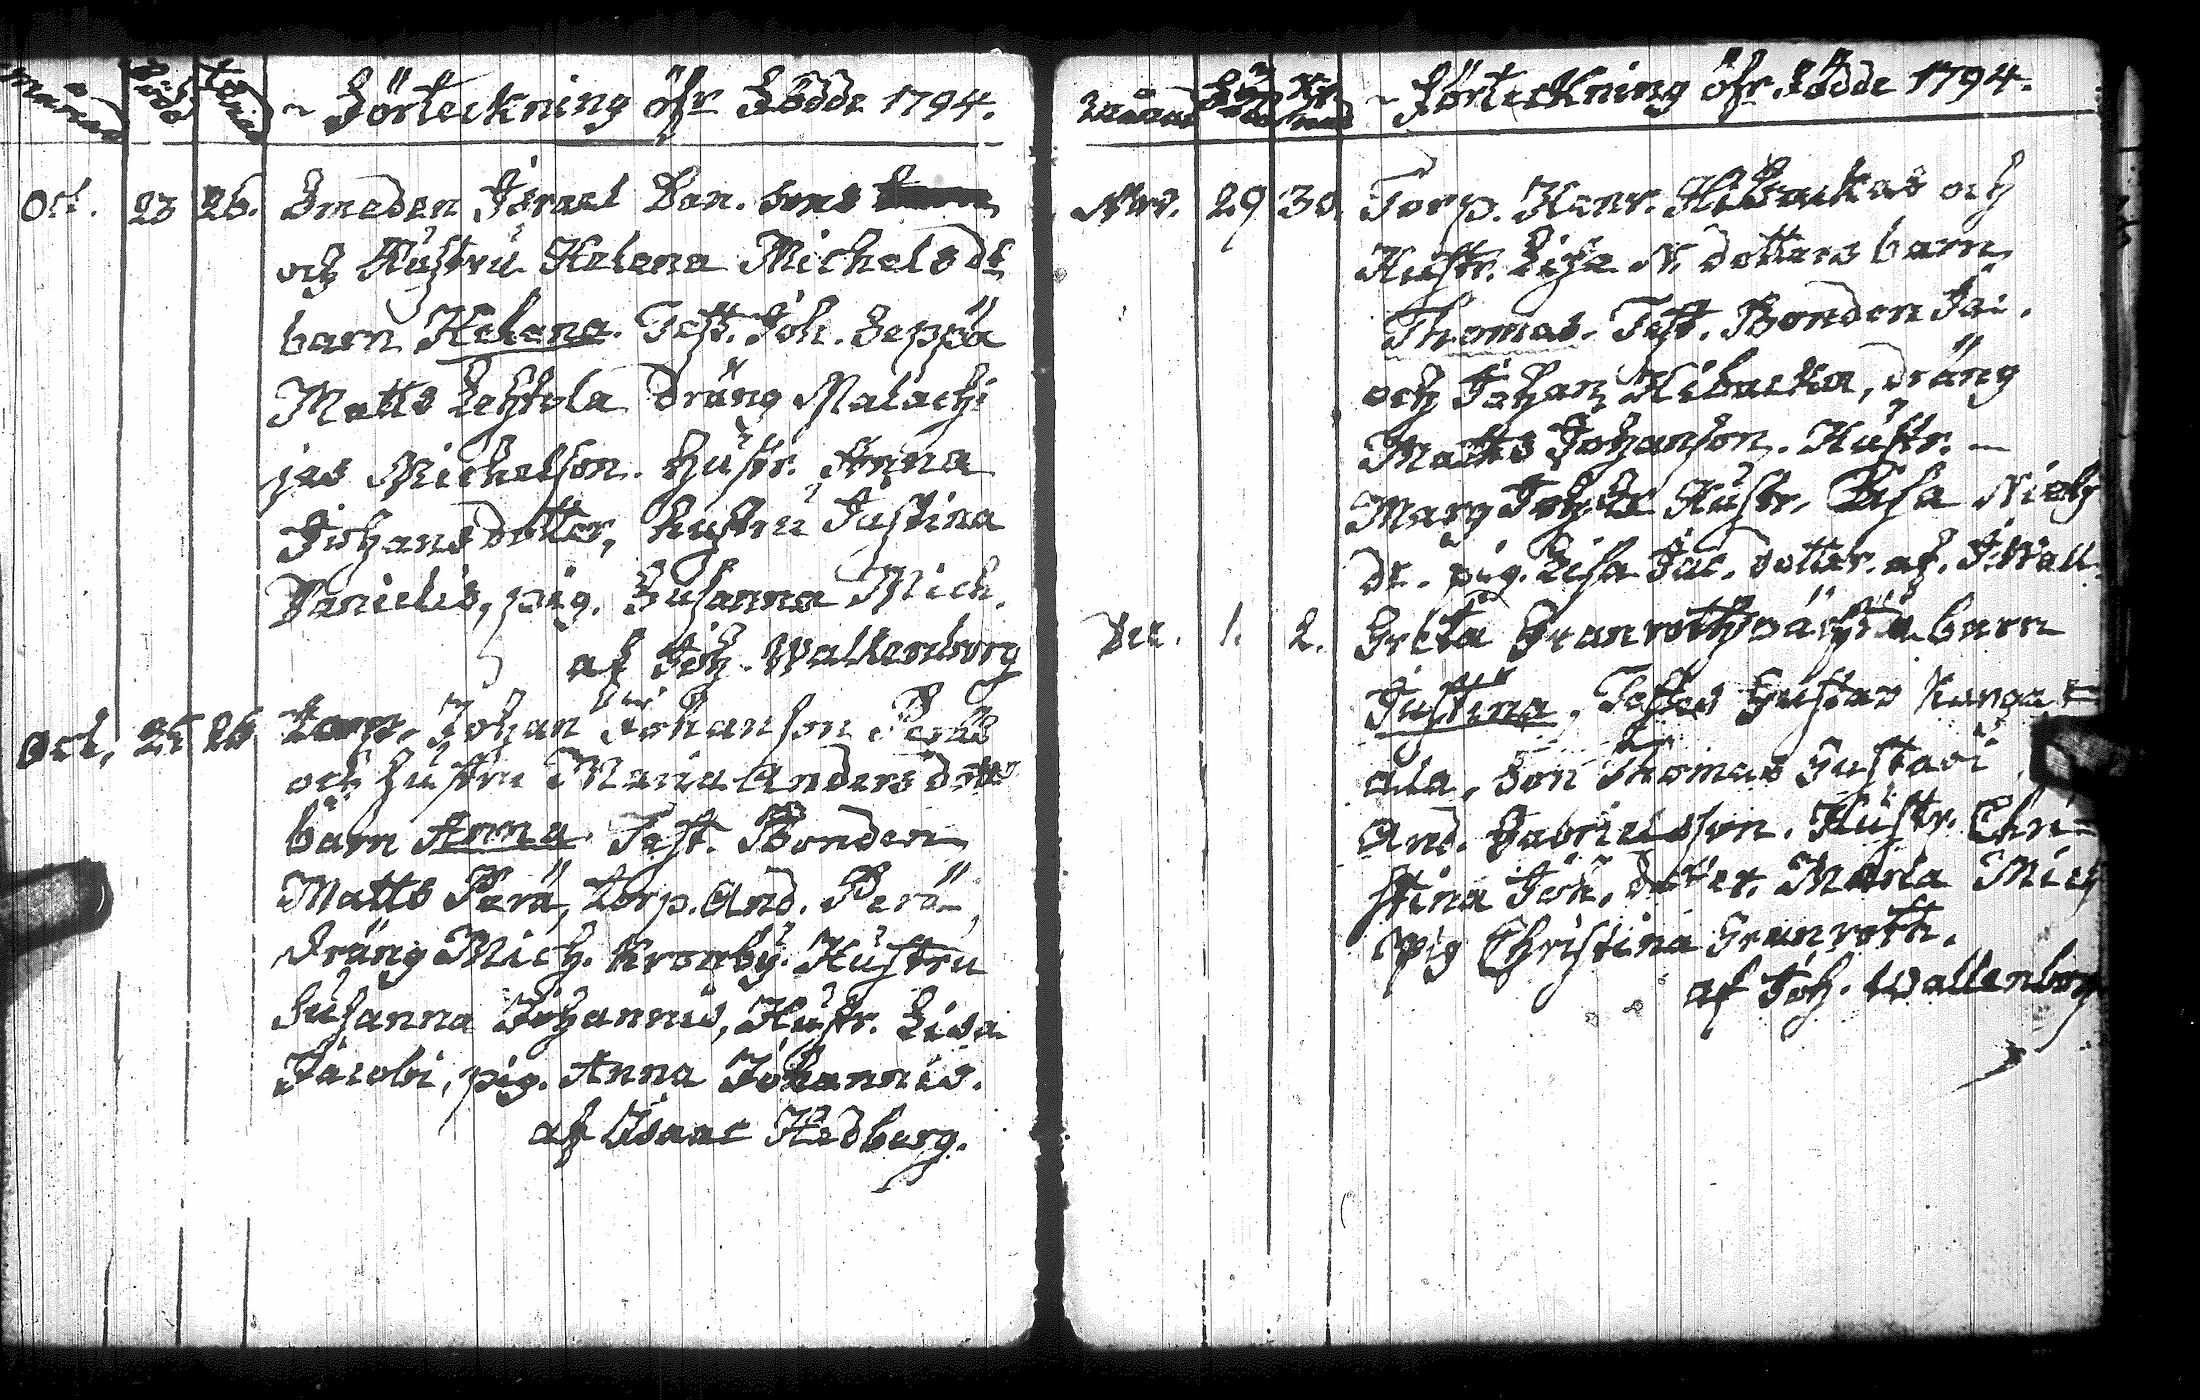 månad född Christ ~ Förteckning öfr Födde 1794.
Oct. 23 26. Smeden Israel Dan. sons
och Hustru Helena Michelsdt
barn Helena. Test. Joh. Seppä
Matts Lehtola Dräng Malachi
jas Michelson. Hustr. Anna
Johansdotter, hustru Justina
Danielis, pig. Susanna Mich.
af Joh. Wallenborg
Oct. 25 26 torp. Johan Johanson Perä
och hustru Maria Andersdotter
barn Anna Test. Bonden
Matts Perä, torp. And. Perä,
dräng Mich. Kronby. Hustru
Susanna Johannis, Hustr. Lisa
Jacobi, pig. Anna Johannis.
af Isaac Hedberg.
månad ~ Förteckning öfr. Födde 1794.
Nov. 29 30. Torp. Henr. Kibackas och
Hustr. Lisa N. dotters barn
Thomas. Test. Bonden Jac.
och Johan Kibacka, dräng
Matts Johanson. Hustr. —
Marg Joh. dt Hustr. Lisa Nich
dt. pig. Lisa Jac. dotter. af. J. Wall
Dec. 1. 2. Greta Granroth oächta barn
Justina, Testes Gustav Kangas
ala, Son Thomas Gustavi
And. Gabrielsson. Hustr. Chri-
stina Joh. dotter. Maria Mich
pig Christina Granroth.
af Joh. Wallenborg